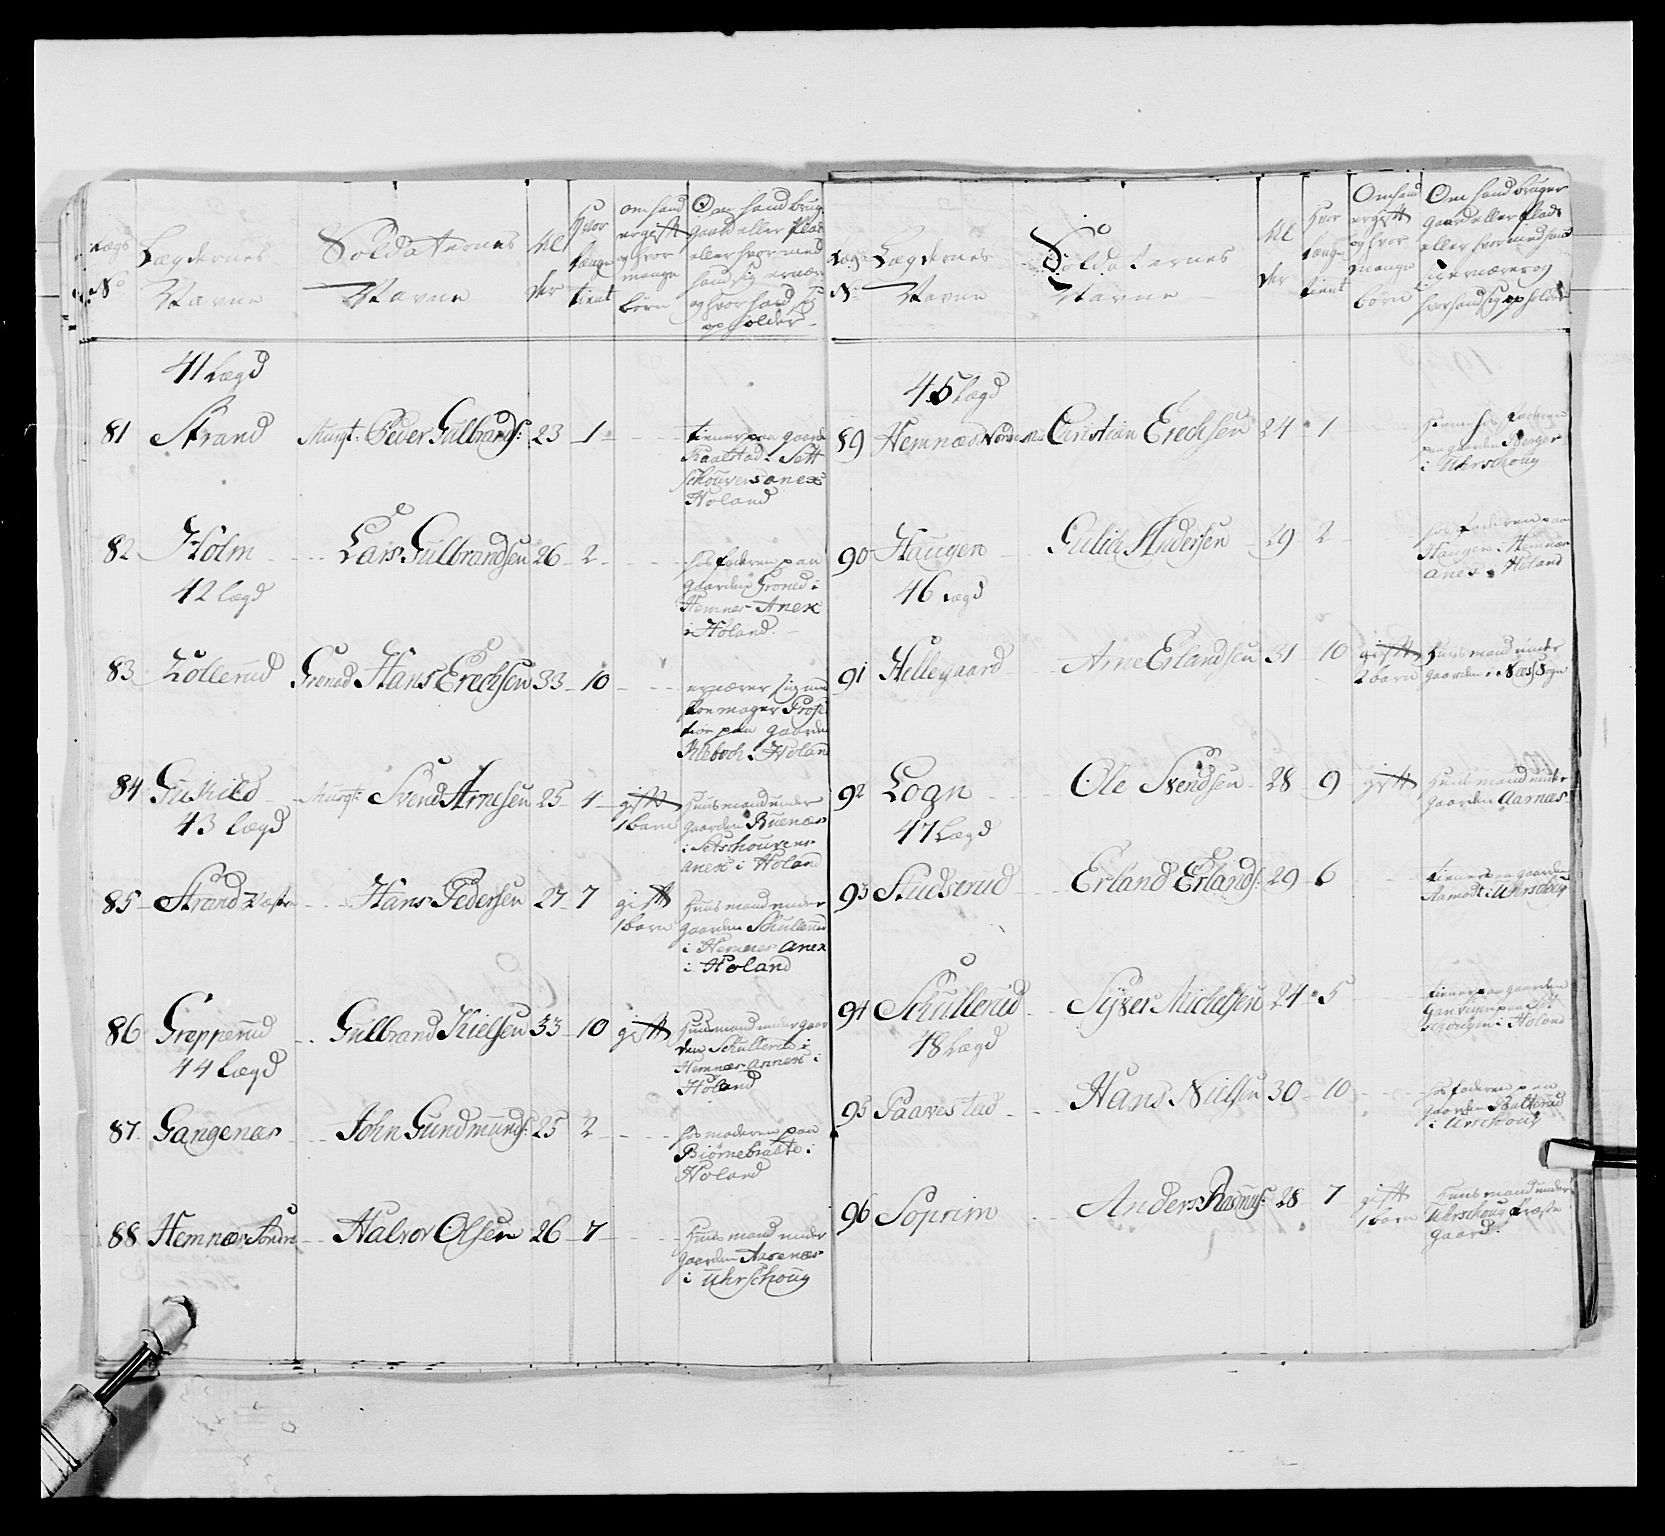 Lægs No
Lægdernes Navne
Soldaternes Navne
Al der
Hvor længe tient
om hand er gift og hvor mange börn
Om hand brug gaard eller Plads eller hvormed hand sig ernær og hvor hand sig opholder
41 Lægd
81 Strand Musqt: Peder Gulbrands: 23 1
tiener paa gaarden
Kaalstad i Sett
schouvens anex
Holand
82 Holm Lars Gulbrandsen 26 2
hos faderen paa
gaarden Groned i
Hemnes Anex
i Höland
42 lægd
83 Tollerud Grenad Hans Erechsen 33 10
ernærer sig med
Skoemager Profe
tion paa gaarden
i Holand
84 Guthild Musqt: Svend Arnesen 25 4 gift 1 barn
Huusmand under
gaarden Ruenæs
i Setschouvens
anex i Holand
43 Lægd
85 Strand Vestre Hans Pedersen 27 7 gift 1 barn
Huusmand under
gaarden Schullerud
i Hemnes anex
i Holand
86 Grepperud Gulbrand Kielsen 33 10 gift
Huusmand under gaar
den Schullerud i
Hemnæs annex i
Höland
44 Lægd
87 Gangenæs John Gundmunds: 25 2
hos moderen paa
Biörnebraate i
Holand
88 Hemnæs Söndre Halvor Olsen 26 7
Huusmand under
gaarden Aasenæs
i Uhrschoug
Lægs No
Lægdernes Navne
Soldaternes Navne
Al der
Hvor længe tient
Om hand er gift og hvor mange börn
Om hand bruger gaard eller Plads eller hvormed hand sig ernærer og hvor hand sig opholder
45 Lægd
89 Hemnæs Nordre Christian Erechsen 24 1
hos Faderen
paa gaarden Berger
i Uhrschoug
90 Haugen Gulich Andersen 29 2
hos Faderen paa
Haugen i Hemnæs
anex i Höland
46 Lægd
91 Hellegaard Arne Erlandsen 31 10 gift 2 barn
Huusmand under
gaarden i Næss Sogn
92 Logn Ole Svendsen 28 9 gift
Huusmand under
gaarden Aarnæs
47 Lægd
93 Studserud Erland Erlands: 29 6
tiener paa gaarden
Aamodt i Uhrschoug
94 Schullerud Syver Michelsen 24 5
tiener paa gaarden
i Höland
48 Lægd
95 Paavestad Hans Nielsen 30 10
hos faderen paa
gaarden
i Urschoug
96 Soprim Anders Rasmus: 28 7 gift 1 barn
Huusmand under
Uhrschoug Præste
gaard.